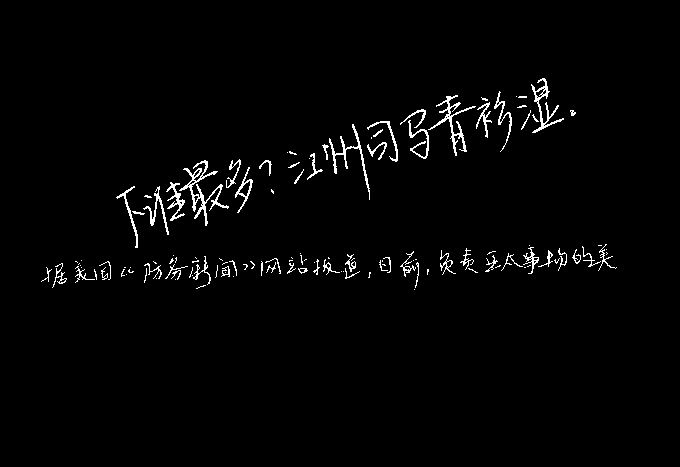 下谁最多?江州司马青衫湿。
据美国《防务新闻》网站报道,日前,负责亚太事物的美